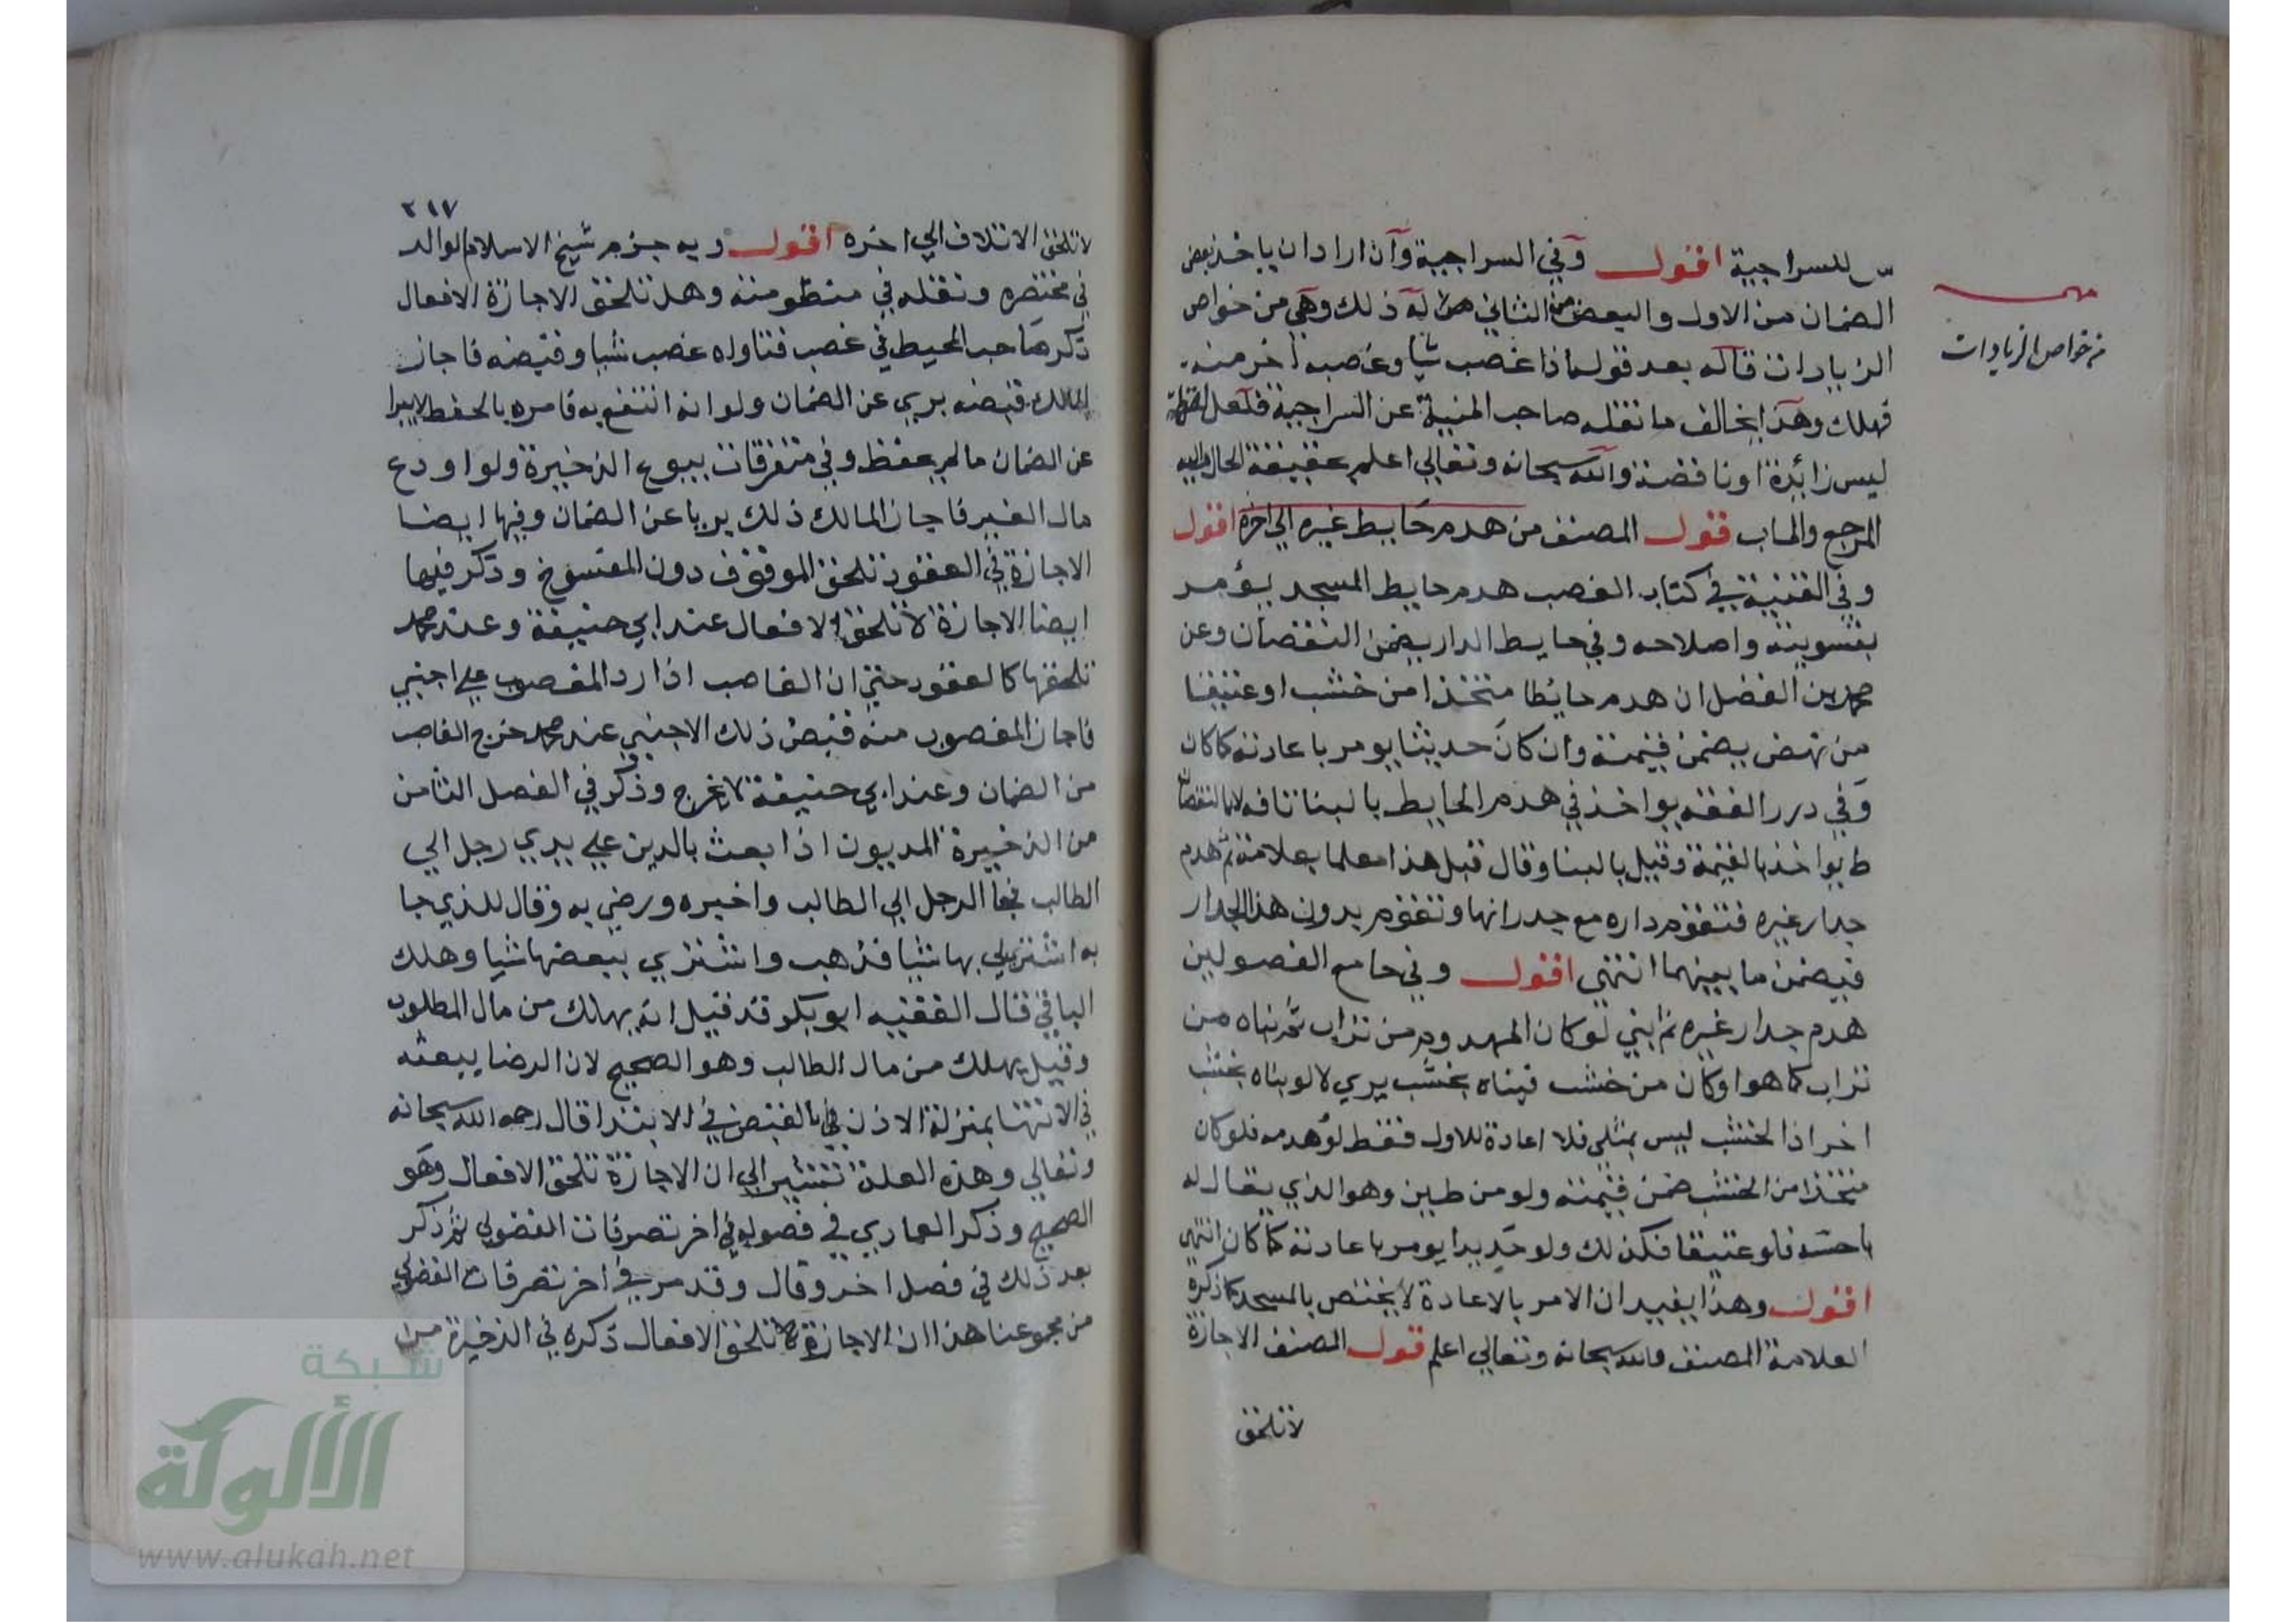 س للسراجية اقول وفي السراجية وان اراد ان ياخذ بعض
الضمان من الاول والبعض من الثاني هل له ذلك وهي من خواص
الزيادات قاله بعد قوله اذا غصب شيا وغصبه اخر منه
فهلك وهذا يخالف ما نقله صاحب المنية عن السراجية فلعل لفظة
ليس زائدة او ناقصة والله سبحانه وتعالي اعلم بحقيقة الحال واليه
المرجع والماب قول المصنف من هدم حايط غيره الي اخره اقول
وفي القنية في كتاب الغصب هدم حايط المسجد يؤمر
بتسويته واصلاحه وفي حايط الدار يضمن النقصان وعن
محمد بن الفضل ان هدم حائطا متخذا من خشب او عتيقا
من يضمن قيمته وان كان حديثا يومر باعادته كما كان
وفي درر الفقه يواخذ في هدم الحايط بالبنا لا بالنقصان
ط يواخذ بالقيمة وقيل بالبنا وقال قبل هذا معلما بعلامة ثم هدم
جدار غيره فتقوم داره مع جدرانها وتقوم بدون هذا الجدار
فيضمن ما بينهما انتهي اقول وفي جامع الفصولين
هدم جدار غيره ثم ابني لو كان المهدوم من تراب ثم بناه من
تراب كما هو او كان من خشب فبناه بخشب يبري لا لو بناه بخشب
اخر اذ الخشب ليس بمثلي فلا اعادة للاول فقط لو هدمه فلو كان
متخذا من الخشب ضمن قيمته ولو من طين وهو الذي يقال له
فلو عتيقا فكذلك ولو جديدا يومر باعادته كما كان انتهي
اقول وهذا يفيد ان الامر بالاعادة لا يختص بالمسجد كما ذكره
العلامة المصنف والله سبحانه وتعالي اعلم قول المصنف الاجازة
لا تلحق
مهم
من خواص الزيادات
٢١٧
لا تلحق الاتلاف الي اخره اقول وبه جزم شيخ الاسلام الوالد
في مختصره ونقله في منظومته وهل تلحق الاجازة الافعال
ذكر صاحب المحيط في غصب فتاواه غصب شيا وقبضه فاجاز
المالك قبضه بري عن الضمان ولو انه انتفع به فامره بالحفظ لا يبرا
عن الضمان ما لم يحفظ وفي متفرقات بيوع الذخيرة ولو اودع
مال الغير فاجاز المالك ذلك بريا عن الضمان وفيها ايضا
الاجازة في العقود تلحق الموقوف دون المفسوخ وذكر فيها
ايضا الاجازة لا تلحق الافعال عند ابي حنيفة وعند محمد
تلحقها كالعقود حتي ان الغاصب اذا رد المغصوب علي اجنبي
فاجاز المغصوب منه قبض ذلك الاجنبي عند محمد خرج الغاصب
من الضمان وعند ابي حنيفة لا يخرج وذكر في الفصل الثامن
من الذخيرة المديون اذا بعث بالدين علي يدي رجل الي
الطالب فجا الرجل الي الطالب واخبره ورضي به وقال للذي جا
به اشتر لي بها شيا فذهب واشتري ببعضها شيا وهلك
الباقي قال الفقيه ابو بكر قد قيل انه يهلك من مال المطلوب
وقيل يهلك من مال الطالب وهو الصحيح لان الرضا ببعثه
في الانتها بمنزلة الاذن بالقبض في الابتدا قال رحمه الله سبحانه
وتعالي وهذه العلة تشير الي ان الاجازة تلحق الافعال وهو
الصحيح وذكر العمادي في فصوله في اخر تصرفات الفضولي ثم ذكر
بعد ذلك في فصل اخر وقال وقد مر في اخر تصرفات الفضولي
من مجموعنا هذا ان الاجازة لا تلحق الافعال ذكره في الذخيرة من
شبكة
الألوكة
www.alukah.net